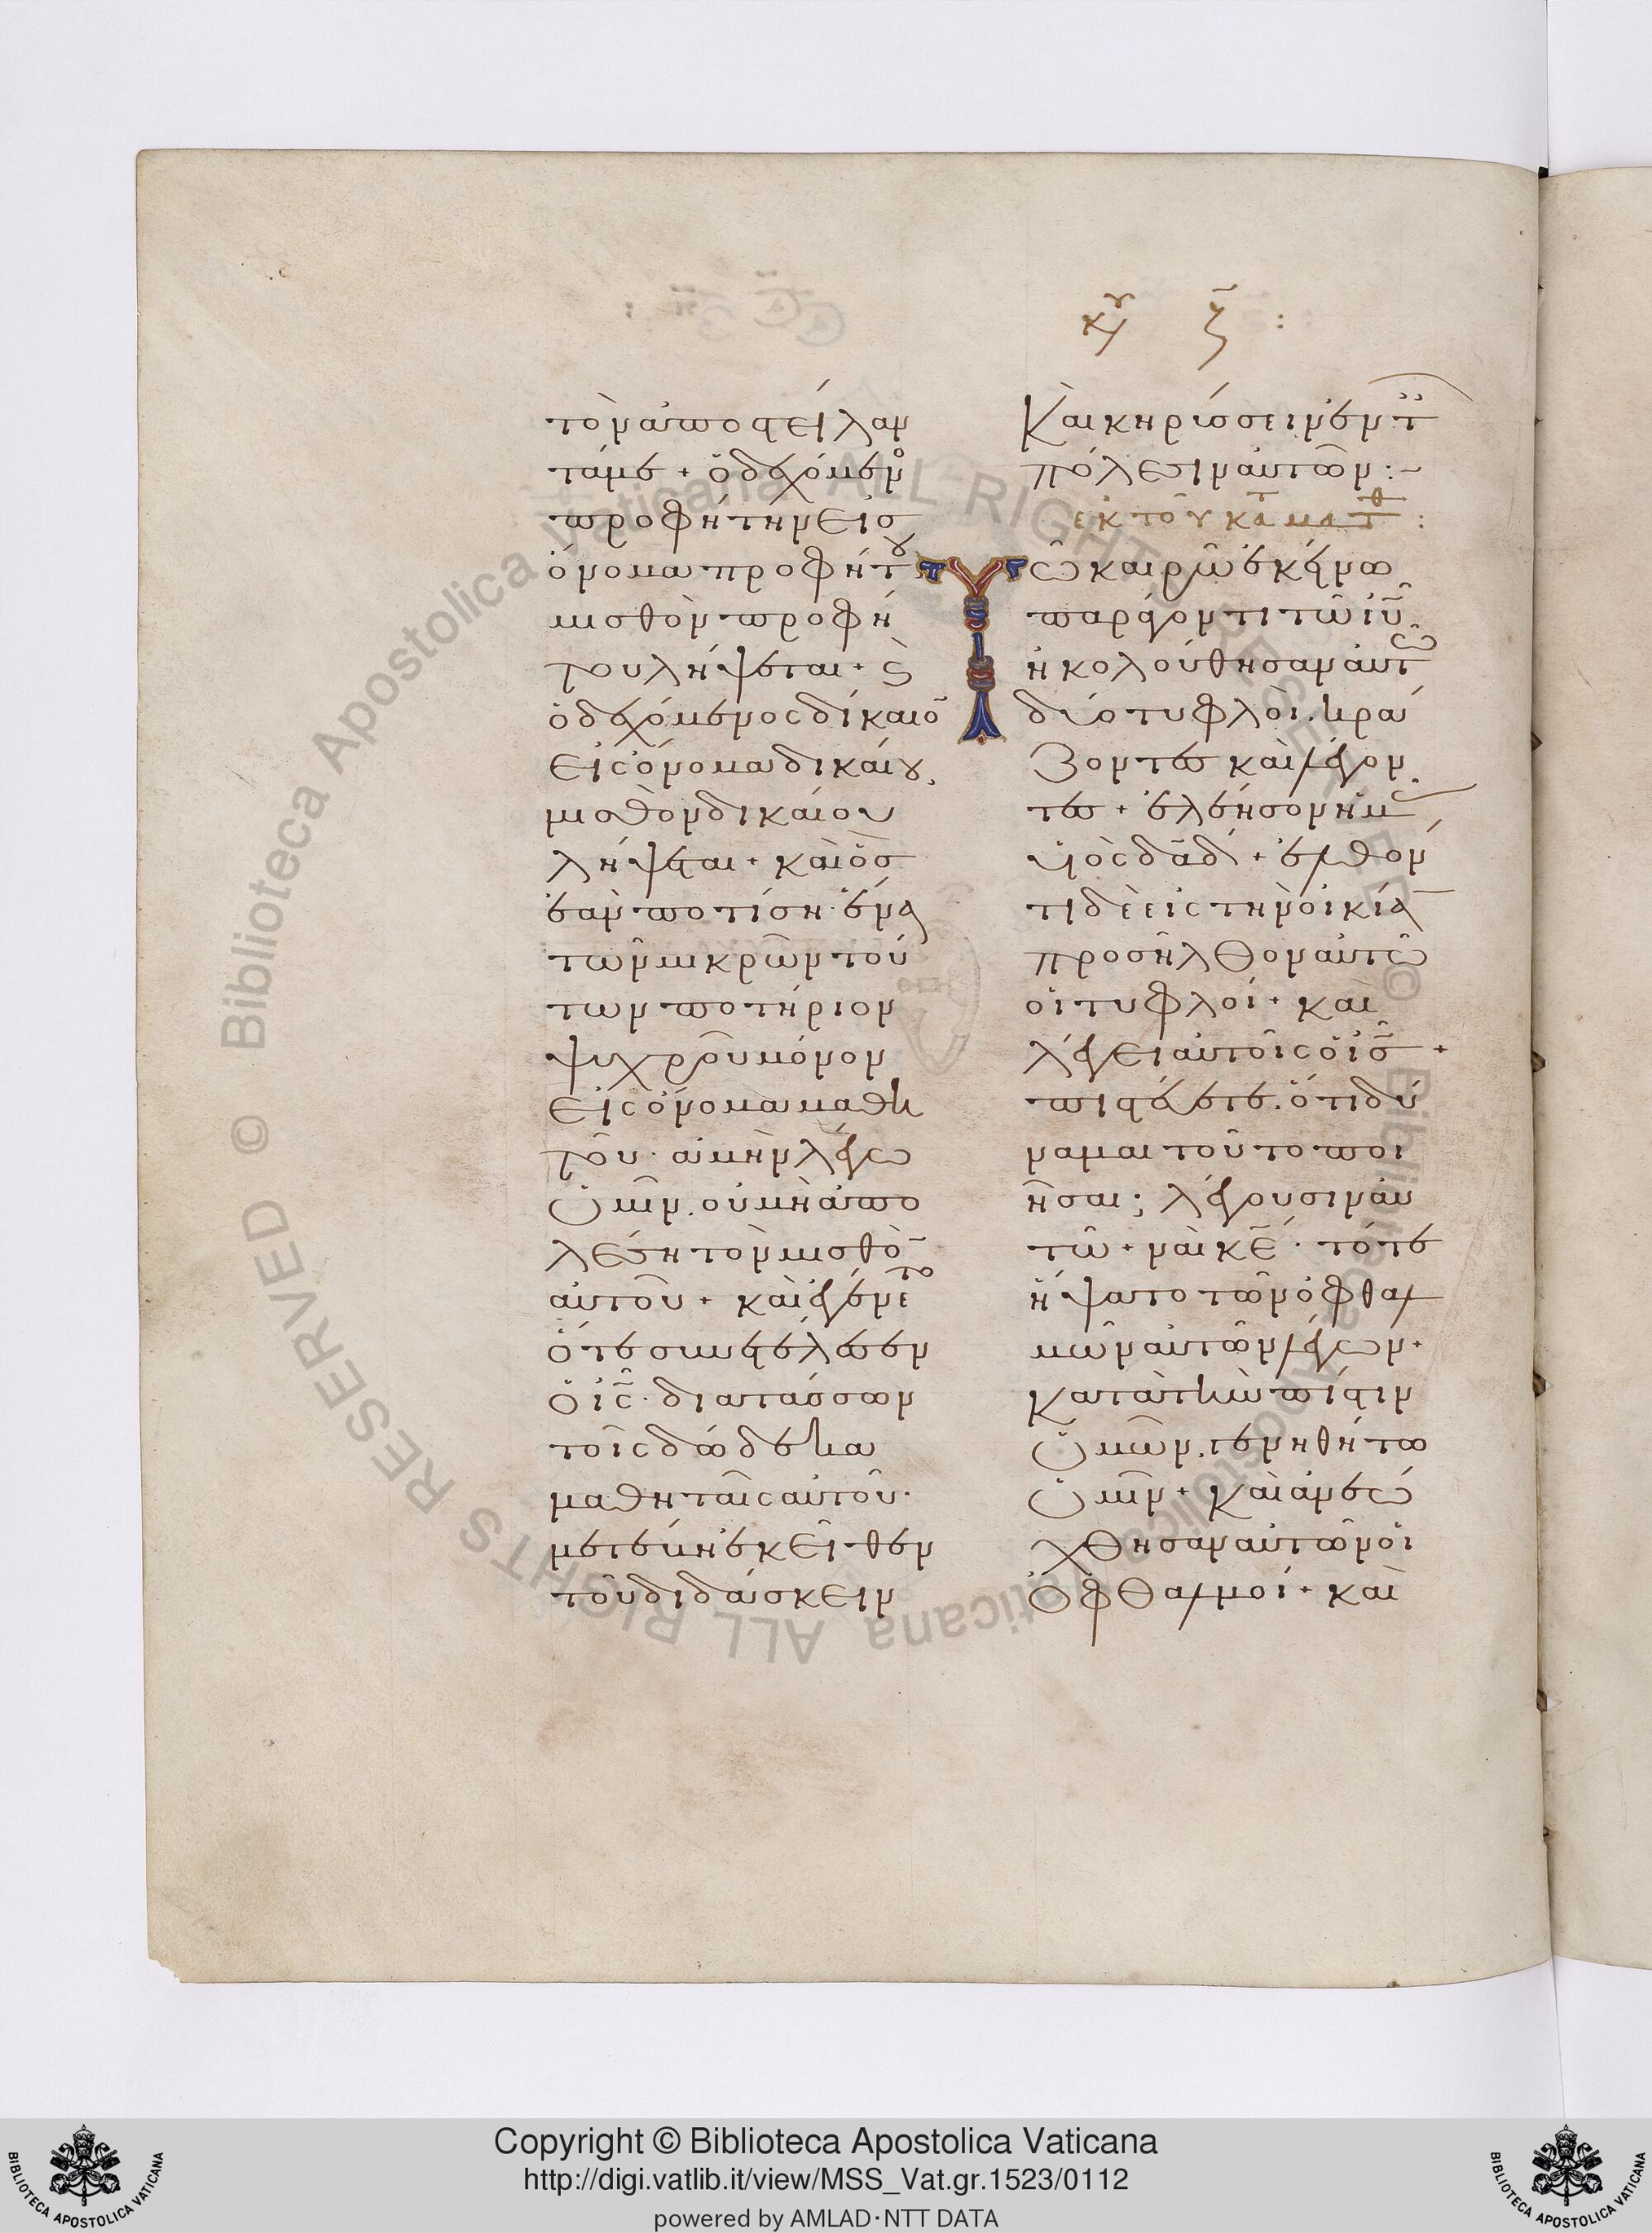 κυ ζ :
τὸν ἀποστείλαν
τά με + ὁ δεχόμενο
προφήτην εἰσ
ὄνομα προφήτου
μισθὸν προφή
του λήψεται + ϗ
ὁ δεχόμενος δίκαιο
εἰς ὄνομα δικαίου,
μισθὸν δικαίου
λήψεται + καὶ ὃσ
ἐὰν ποτίση ἕνα
τῶν μικρῶν τού
των ποτήριον
ψυχροῦ μόνον
εἰς ὄνομα μαθη
τοῦ · ἀμὴν λέγω
ὑμῖν. οὐ μὴ ἀπο
λέση τὸν μισθὸ
αὐτοῦ + καὶ ἐγένετο
ὅτε συνετέλεσεν
ὁ ι̅ς̅ · διατάσσων
τοῖς δώδεκα
μαθηταῖς αὐτοῦ ·
μετέβη ἐκεῖθεν
τοῦ διδάσκειν
Καὶ κηρύσσειν ἐν τ
πόλεσιν αὐτῶν :~
ἐκ τοῦ κατὰ ματθ :
Τῶ καιρῶ ἐκείνω
παράγοντι τῶ ι̅υ̅
ἠκολούθησαν αὐτῶ
δύο τυφλοὶ. κρά
ζοντες καὶ λέγον
τες + ἐλέησον ἡμᾶς
υἱὸς δα̅δ + ἐλθόν
τι δὲ εἰς τὴν οἰκία
προσῆλθον αὐτῶ
οἱ τυφλοί + καὶ
λέγει αὐτοῖς ὁ ι̅ς̅ +
πιστεύετε. ὅτι δύ
ναμαι τοῦτο ποι
ῆσαι; λέγουσιν αὐ
τῶ + ναὶ κ̅ε̅ · τότε
ἥψατο τῶν ὀφθαλ
μῶν αὐτῶν λέγων +
κατὰ τὴν πίστιν
ὑμῶν. γενηθήτω
ὑμῖν + Καὶ ἀνεώ
χθησαν αὐτῶν οἱ
ὀφθαλμοί + καὶ
© Biblioteca Apostolica Vaticana ALL RIGHTS RESERVED
© Biblioteca Apostolica Vaticana ALL RIGHTS RESERVED
BIBLIOTECA APOSTOLICA VATICANA
Copyright © Biblioteca Apostolica Vaticana
http://digi.vatlib.it/view/MSS_Vat.gr.1523/0112
powered by AMLAD·NTT DATA
BIBLIOTECA APOSTOLICA VATICANA